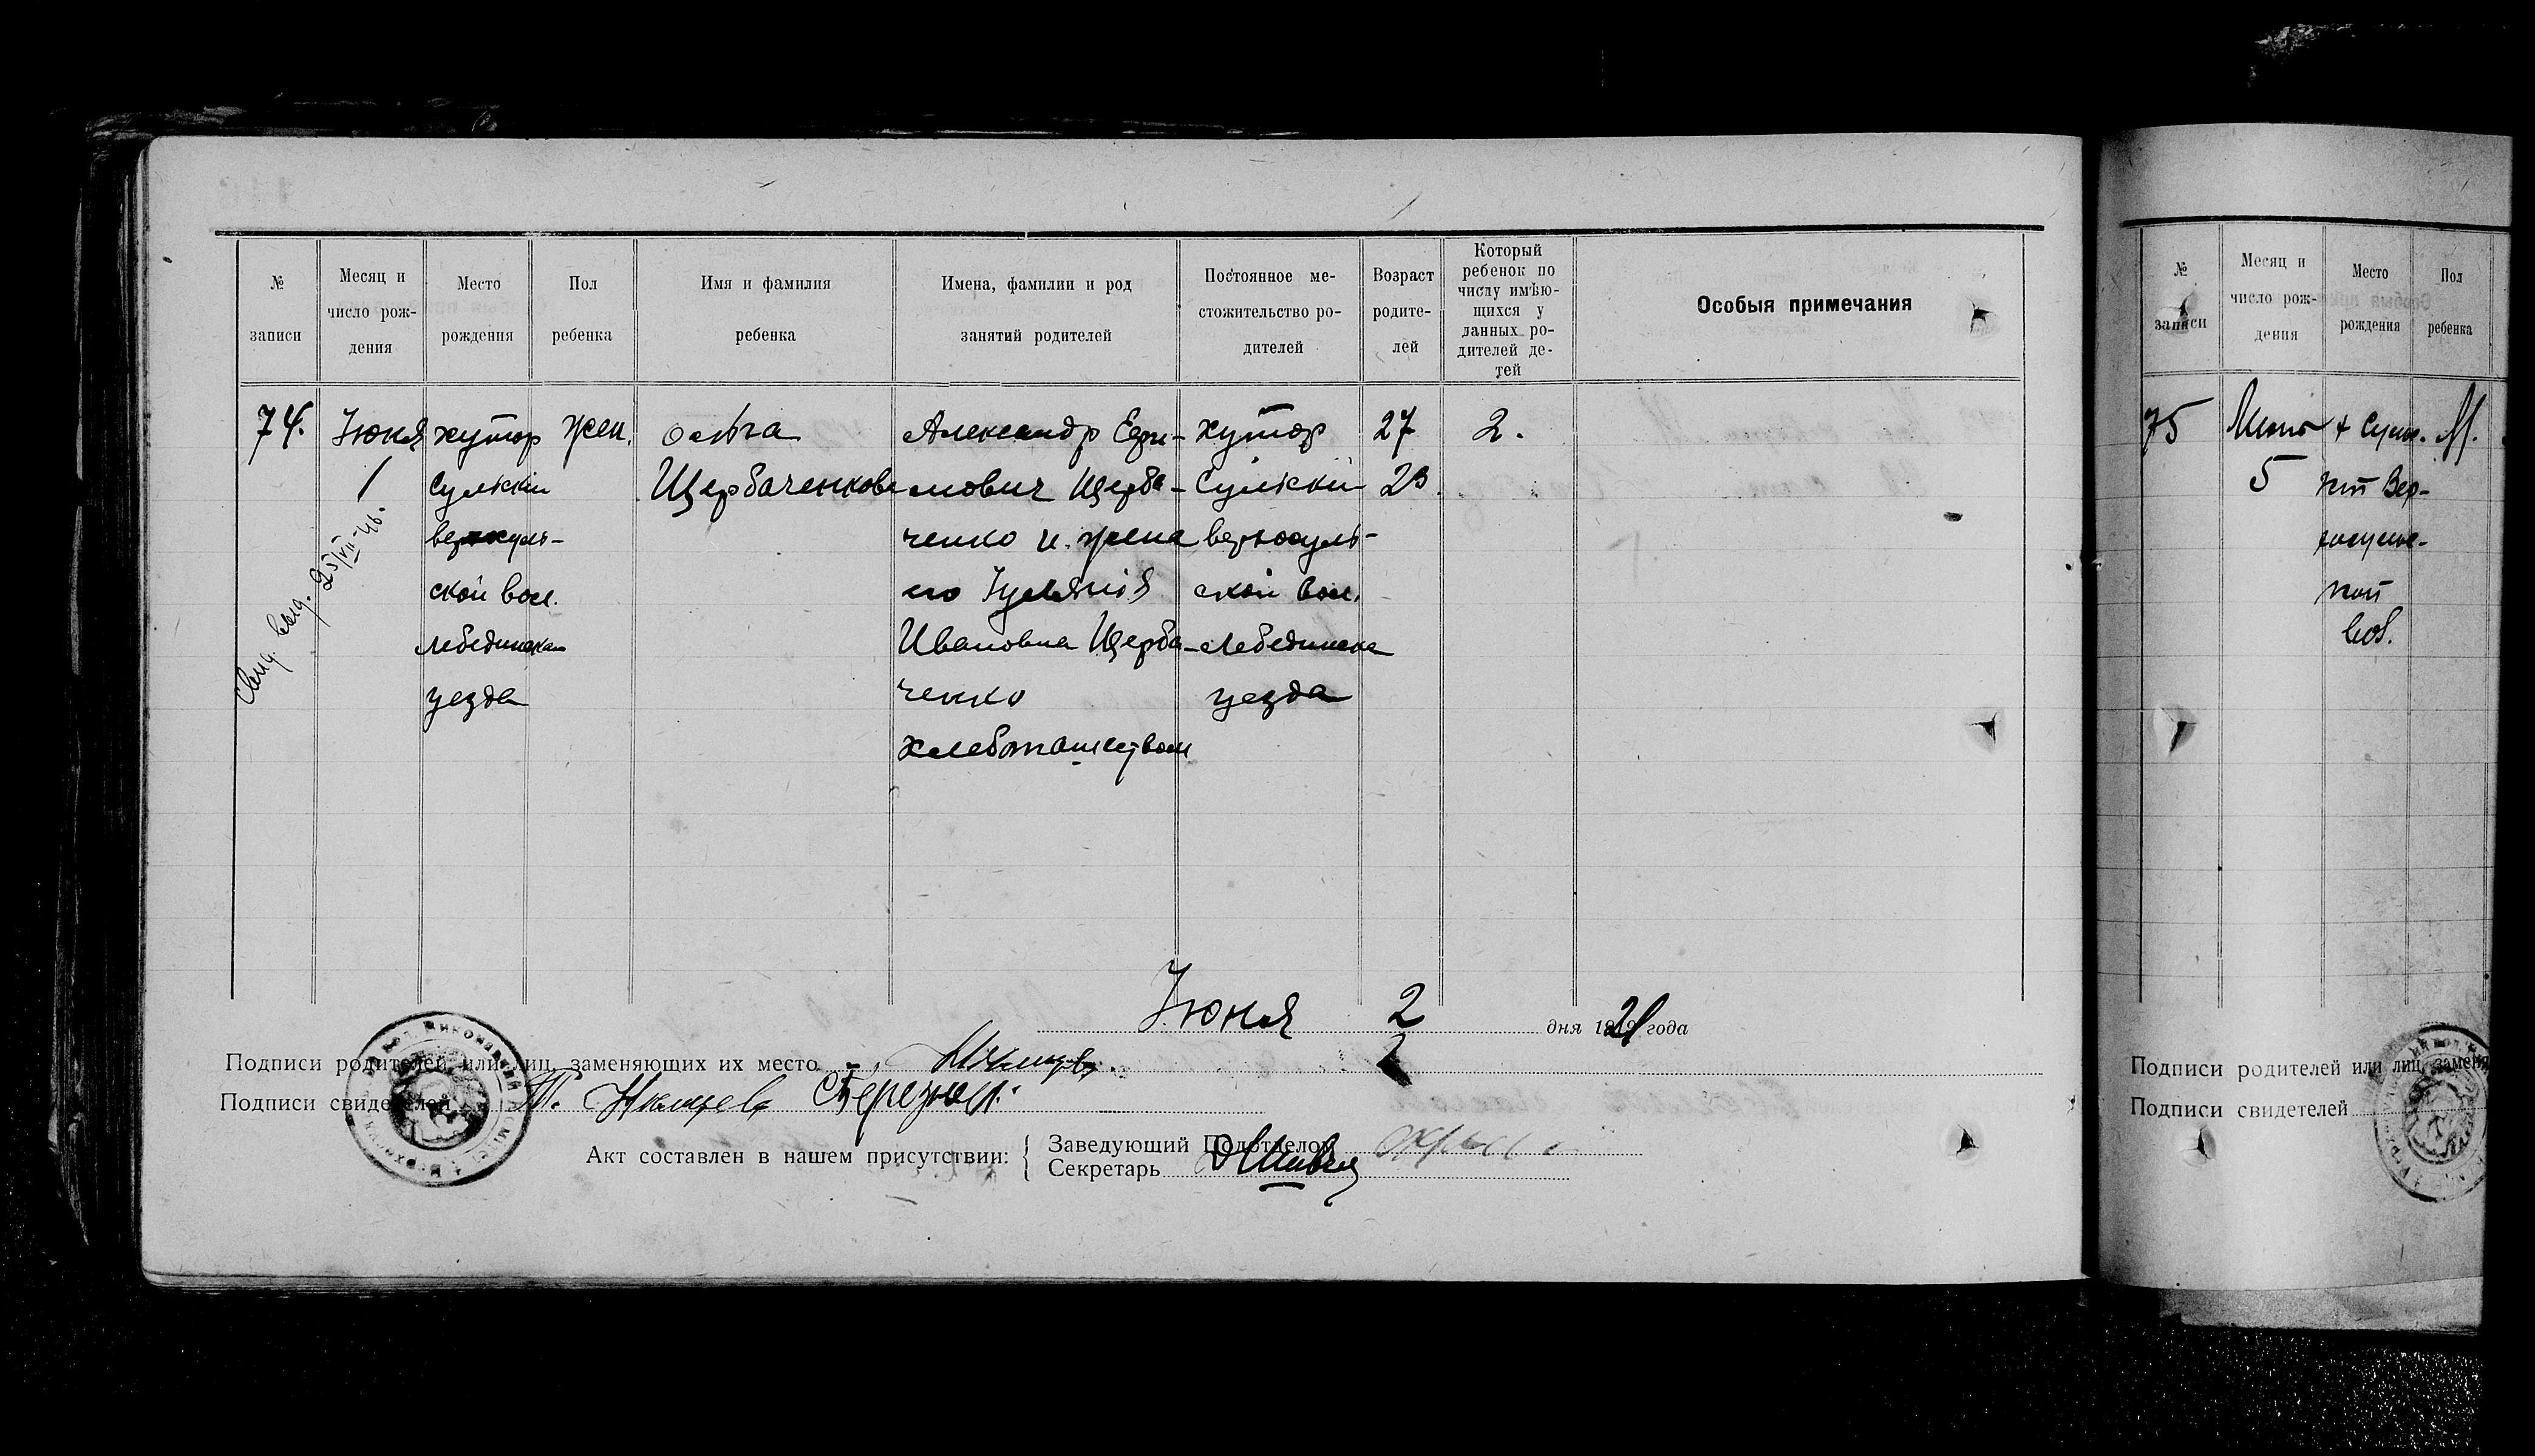 № записи
Месяц и число рождения
Место рождения
Пол ребенка
Имя и фамилия ребенка
Имена, фамилии и род занятий родителей
Постоянное местожительство родителей
Возраст родителей
Который ребенок по числу имѣющихся у данных родителей детей
Особыя примечания
74.
Июня
1
хутор
Сульский
верхосуль-
ской вол.
Лебединскаго
уезда
жен.
Ольга
Щербаченкова
Александр Ефи-
мович Щерба-
ченко и жена
его
Ивановна Щерба-
ченко
хутор
Сульский
верхосуль-
ской вол.
Лебединска
уезда
27
23
2.
Свид. выд. 25/VII-46.
Июня 2 дня 1921 года
Подписи родителей или лиц, заменяющих их место
Подписи свидетелей
Акт составлен в нашем присутствии:
Заведующий Подотделом
Секретарь
№ записи
Месяц и число рождения
Место рождения
Пол ребенка
75
5
х Сульс.
кой Вер-
хосульс-
кой
вол.
М.
Подписи родителей или лиц, заменя
Подписи свидетелей